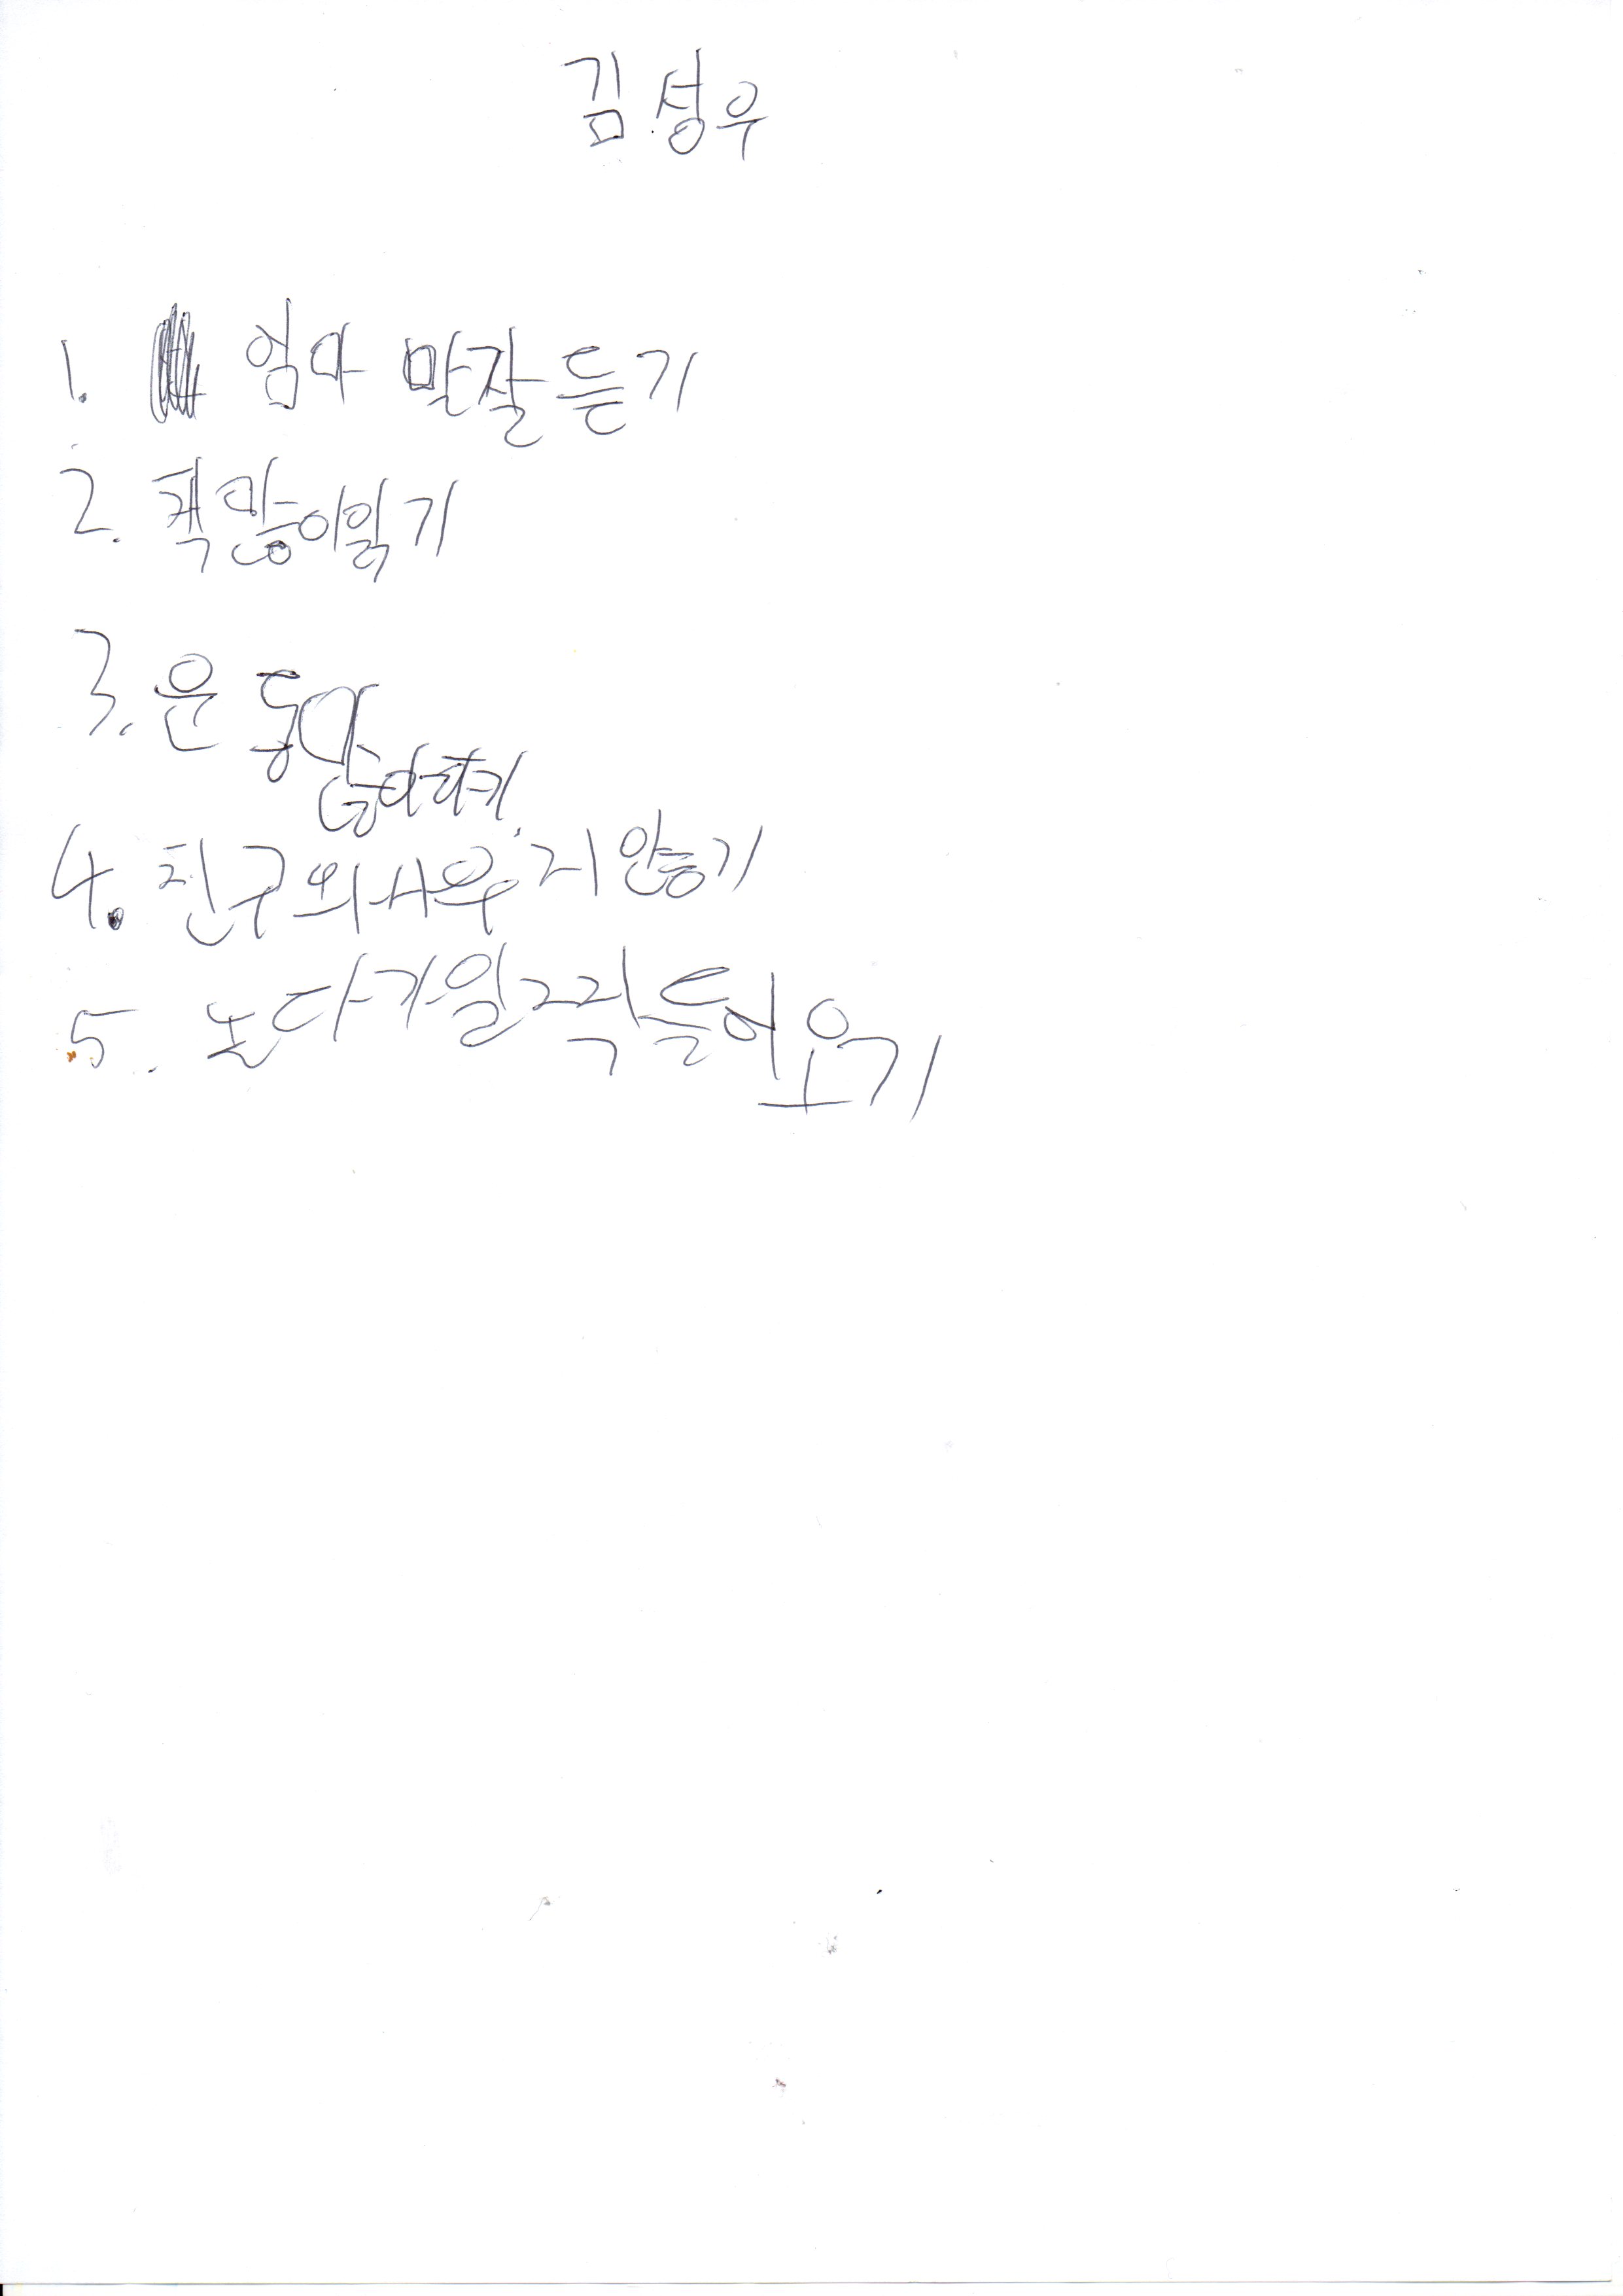 김성우
1. 엄마 말잘듣기
2. 책많이읽기
3. 운동많이하기
4. 친구와싸우지안긍기
5. 논다가일찍들어오기